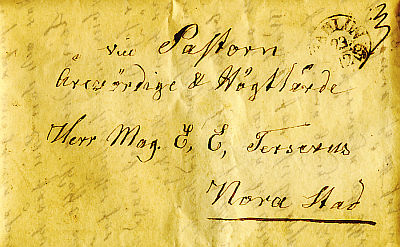 vid Pastorn
Ärewördige & Högtlärde
Herr Mag. E, E, Terserus
Nora Stad
3